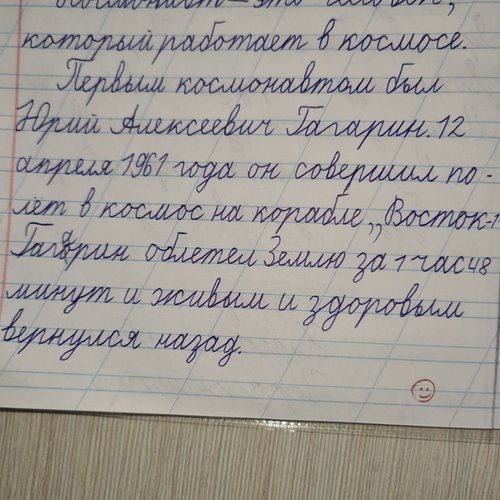 Космонавт – это человек,
который работает в космосе.
Первым космонавтом был
Юрий Алексеевич Гагарин. 12
апреля 1961 года он совершил по-
лёт в космос на корабле „Восток-1
Гагарин облетел Землю за 1 час 48
минут и живым и здоровым
вернулся назад.